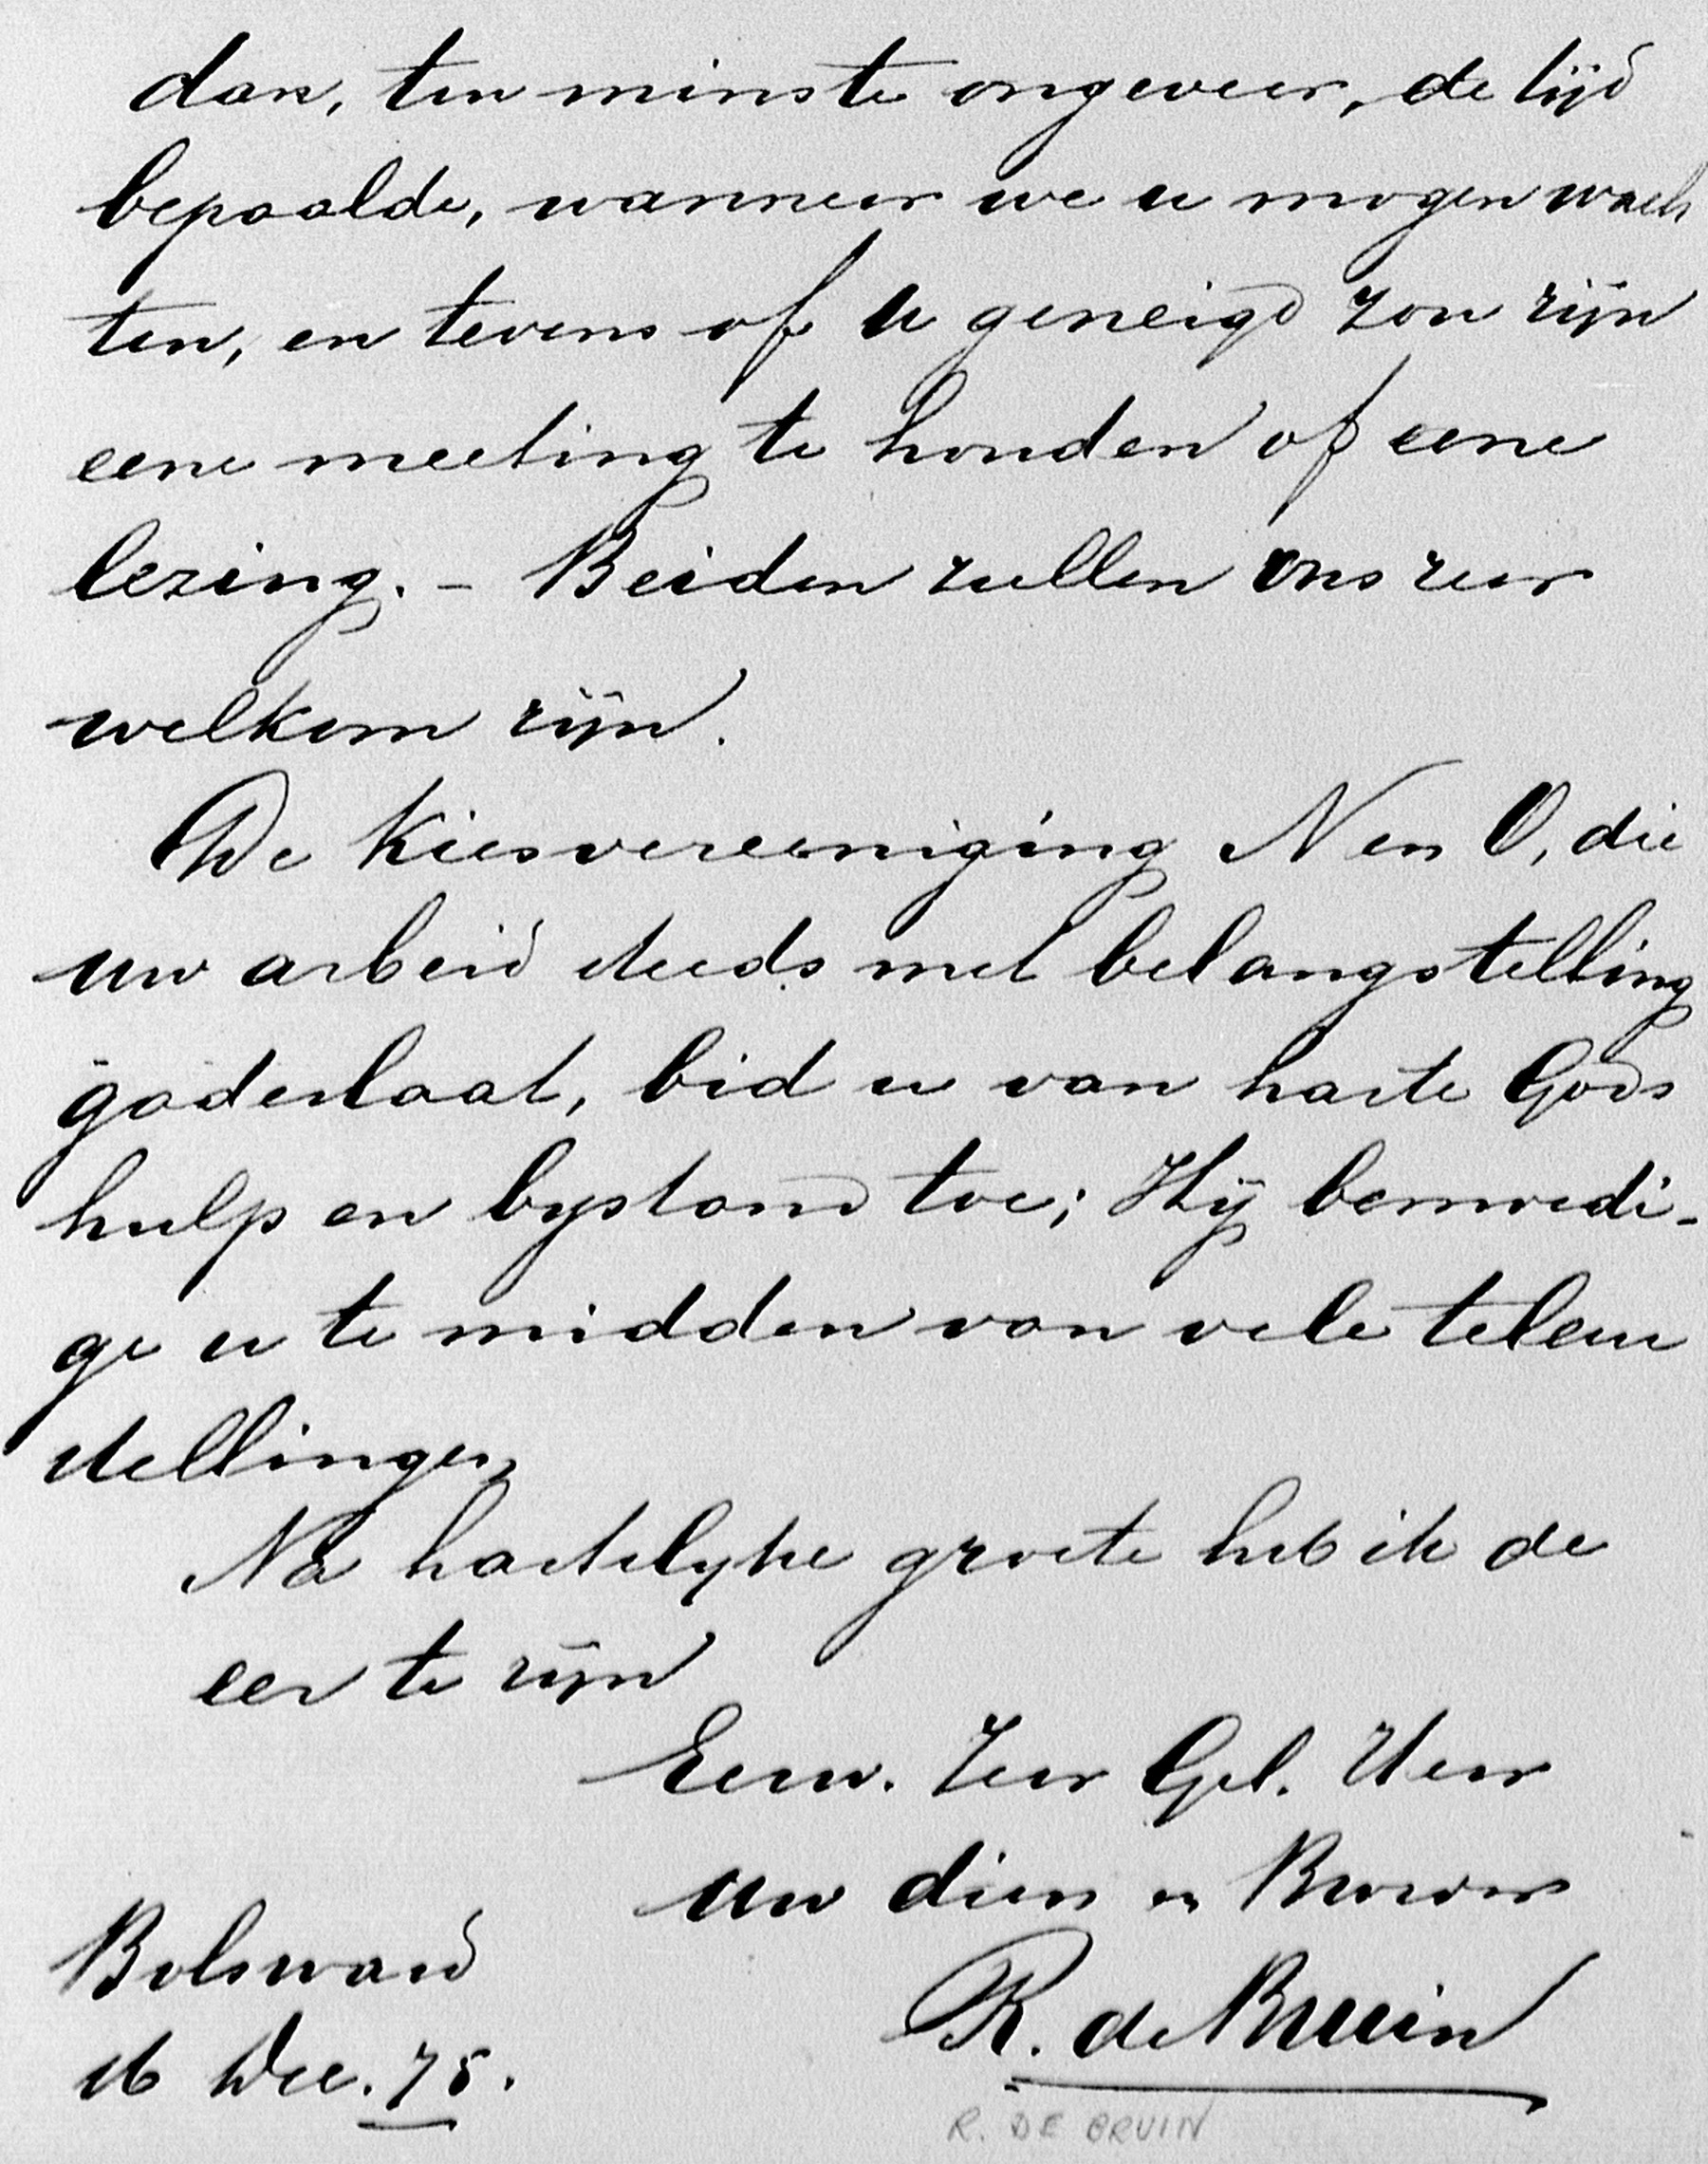 dan, ten minste ongeveer, de tijd
bepaalde, wanneer we u mogen wach
ten, en tevens of u geneigd zou zijn
eene meeting te houden of eene
lezing. – Beiden zullen ons zeer
welkom zijn.
De Kiesvereeniging N en O, die
uw arbeid steeds met belangstelling
gadeslaat, bid u van harte Gods
hulp en bystand toe; Hij bemoedi-
ge u te midden van vele teleur
stellingen,
Na hartelyke groete heb ik de
eer te zijn
Eerw. Zeer Gel. Heer
uw dien en Broeder
R. de Bruin
Bolsward
16 Dec. 75.
R. DE BRUIN